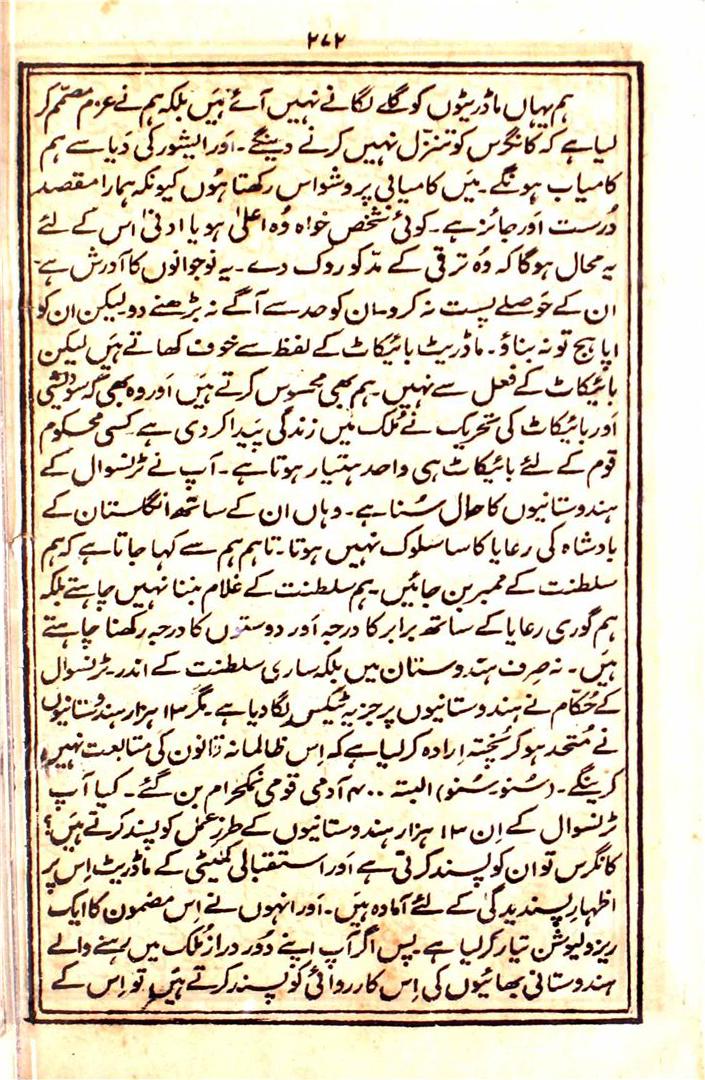 ۲۷۲
ہم یہاں ماڈریٹوں کو گلے لگانے نہیں آئے ہیں بلکہ ہم نے عزم مصمّم کر
لیا ہے کہ کانگرس کو تنزّل نہیں کرنے دینگے۔ اور ایشور کی دَیا سے ہم
کامیاب ہونگے۔ میں کامیابی پر وشواس رکھتا ہُوں کیونکہ ہمارا مقصد
دُرست اور جائز ہے۔ کوئی شخص خواہ وُہ اعلیٰ ہو یا ادنیٰ اس کے لئے
یہ محال ہوگا کہ وہ ترقی کے مد کو روک دے۔ یہ نوجوانوں کا آدرش ہے
ان کے حوصلے پست نہ کرو۔ ان کو حد سے آگے نہ بڑھنے دو لیکن ان کو
اپاہج تو نہ بناؤ۔ ماڈریٹ بائیکاٹ کے لفظ سے خوف کھاتے ہیں لیکن
بائیکاٹ کے فعل سے نہیں۔ ہم بھی محسوس کرتے ہیں اور وہ بھی کہ سودیشی
اور بائیکاٹ کی تحریک نے مُلک میں زندگی پیدا کر دی ہے۔ کسی محکوم
قوم کے لئے بائیکاٹ ہی واحد ہتیار ہوتا ہے۔ آپ نے ٹرنسوال کے
ہندوستانیوں کا حال سُنا ہے۔ وہاں ان کے ساتھ انگلستان کے
بادشاہ کی رعایا کا سا سلوک نہیں ہوتا۔ تاہم ہم سے کہا جاتا ہے کہ ہم
سلطنت کے ممبر بن جائیں۔ ہم سلطنت کے غلام بننا نہیں چاہتے بلکہ
ہم گوری رعایا کے ساتھ برابر کا درجہ اور دوستوں کا درجہ رکھنا چاہتے
ہیں۔ نہ صرف ہندوستان میں بلکہ ساری سلطنت کے اندر۔ ٹرنسوال
کے حُکّام نے ہندوستانیوں پر جزیہ ٹیکس لگا دیا ہے۔ مگر ۱۳ ہزار ہندوستانیوں
نے مُتحد ہو کر پُختہ اِرادہ کر لیا ہے کہ اِس ظالمانہ قانون کی متابعت نہیں
کرینگے۔ (سُنو۔ سُنو) البتہ ۴۰۰ آدمی قومی نمکحرام بن گئے۔ کیا آپ
ٹرنسوال کے اِن ۱۳ ہزار ہندوستانیوں کے طرزِ عمل کو پسند کرتے ہیں؟
کانگرس تو ان کو پسند کرتی ہے اور استقبالی کمیٹی کے ماڈریٹ اِس پر
اظہار پسندیدگی کے لئے آمادہ ہیں۔ اور انہوں نے اِس مضمون کا ایک
ریزولیوشن تیار کر لیا ہے پس اگر آپ اپنے دُور دراز مُلک میں رہنے والے
ہندوستانی بھائیوں کی اِس کارروائی کو پسند کرتے ہیں تو اِس کے